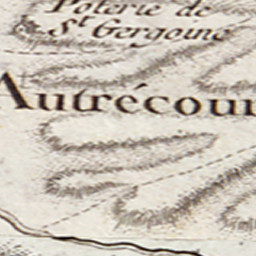 Poterie de
St Gergoine
Autrécour